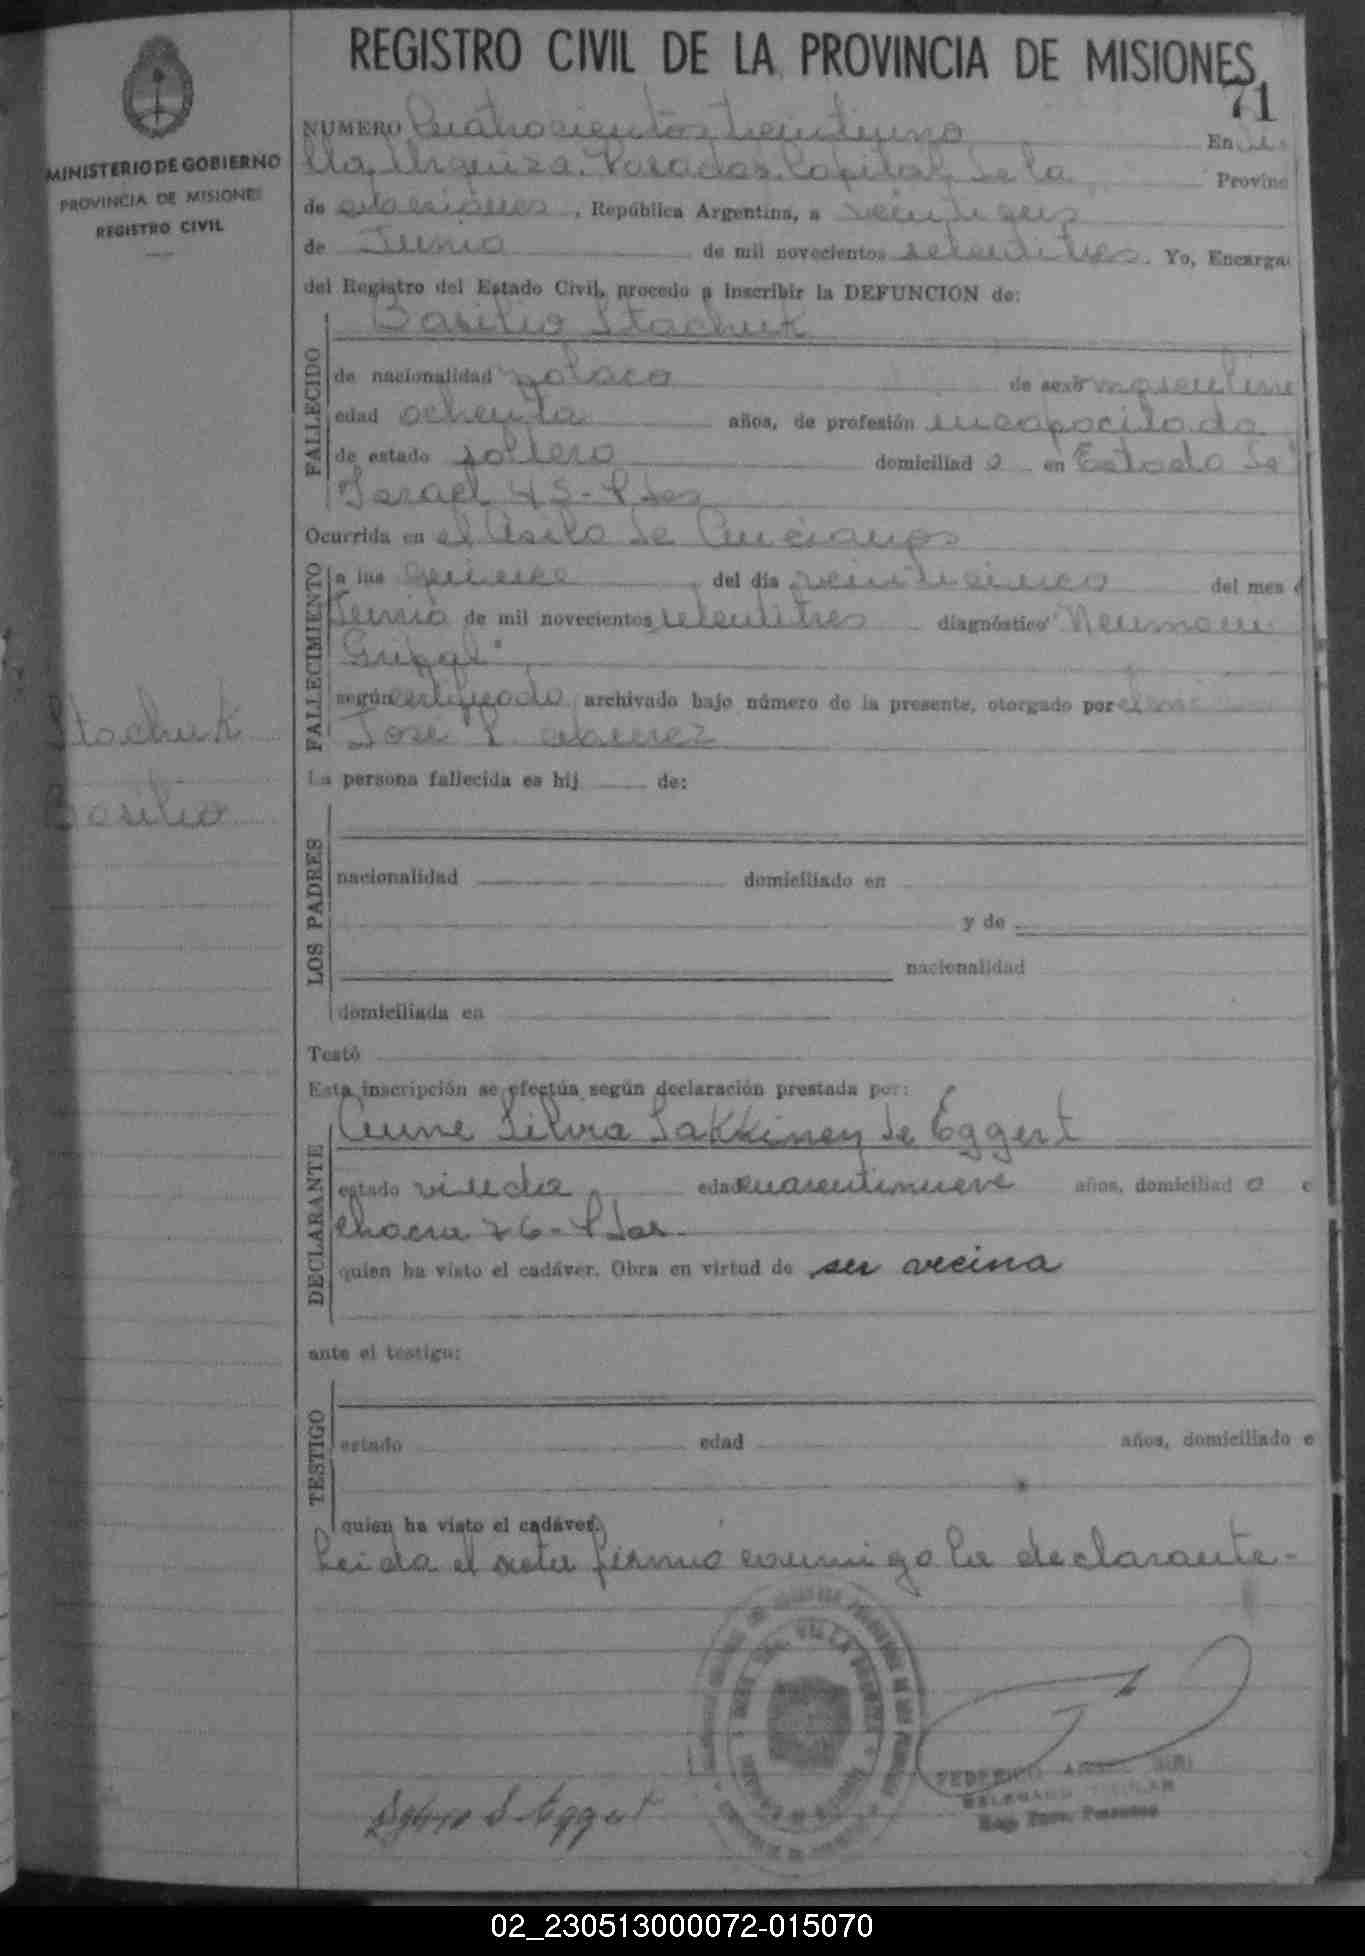 REGISTRO CIVIL DE LA PROVINCIA DE MISIONES
71
MINISTERIO DE GOBIERNO
PROVINCIA DE MISIONES
REGISTRO CIVIL
NUMERO Cuatrocientos treintiuno En Vi
lla Urquiza. Posadas. Capital de la Provinc
de Misiones, República Argentina, a veintiseis
de Junio de mil novecientos setentitres. Yo, Encarga
del Registro del Estado Civil, procedo a inscribir la DEFUNCION de:
Basilio Stachuk
FALLECIDO
de nacionalidad polaco de sexo masculino
edad ochenta años, de profesión incapacitado
de estado soltero domiciliad o en Estado de
Israel 45-Pdas
Ocurrida en el Asilo de Ancianos
FALLECIMIENTO
a las quince del día veinticinco del mes d
Junio de mil novecientos setentitres diagnóstico "Neumoni
Gripal"
según certificado archivado bajo número de la presente, otorgado por
José
Stachuk
Basilio
La persona fallecida es hij de:
LOS PADRES
nacionalidad domiciliado en
y de
nacionalidad
domiciliada en
Testó
Esta inscripción se efectúa según declaración prestada por:
DECLARANTE
Silvia Sakkinen de Eggert
estado viuda edad cuarentinueve años, domiciliad a e
chacra 76-Pdas.
quien ha visto el cadáver. Obra en virtud de ser vecina
ante el testigo:
TESTIGO
estado edad años, domiciliado e
quien ha visto el cadáver.
Leida el acta firmó conmigo la declarante-
VILLA URQUIZA
S Eggert
FEDERICO
DELEGADO TITULAR
Reg. Prov. Personas
02_230513000072-015070